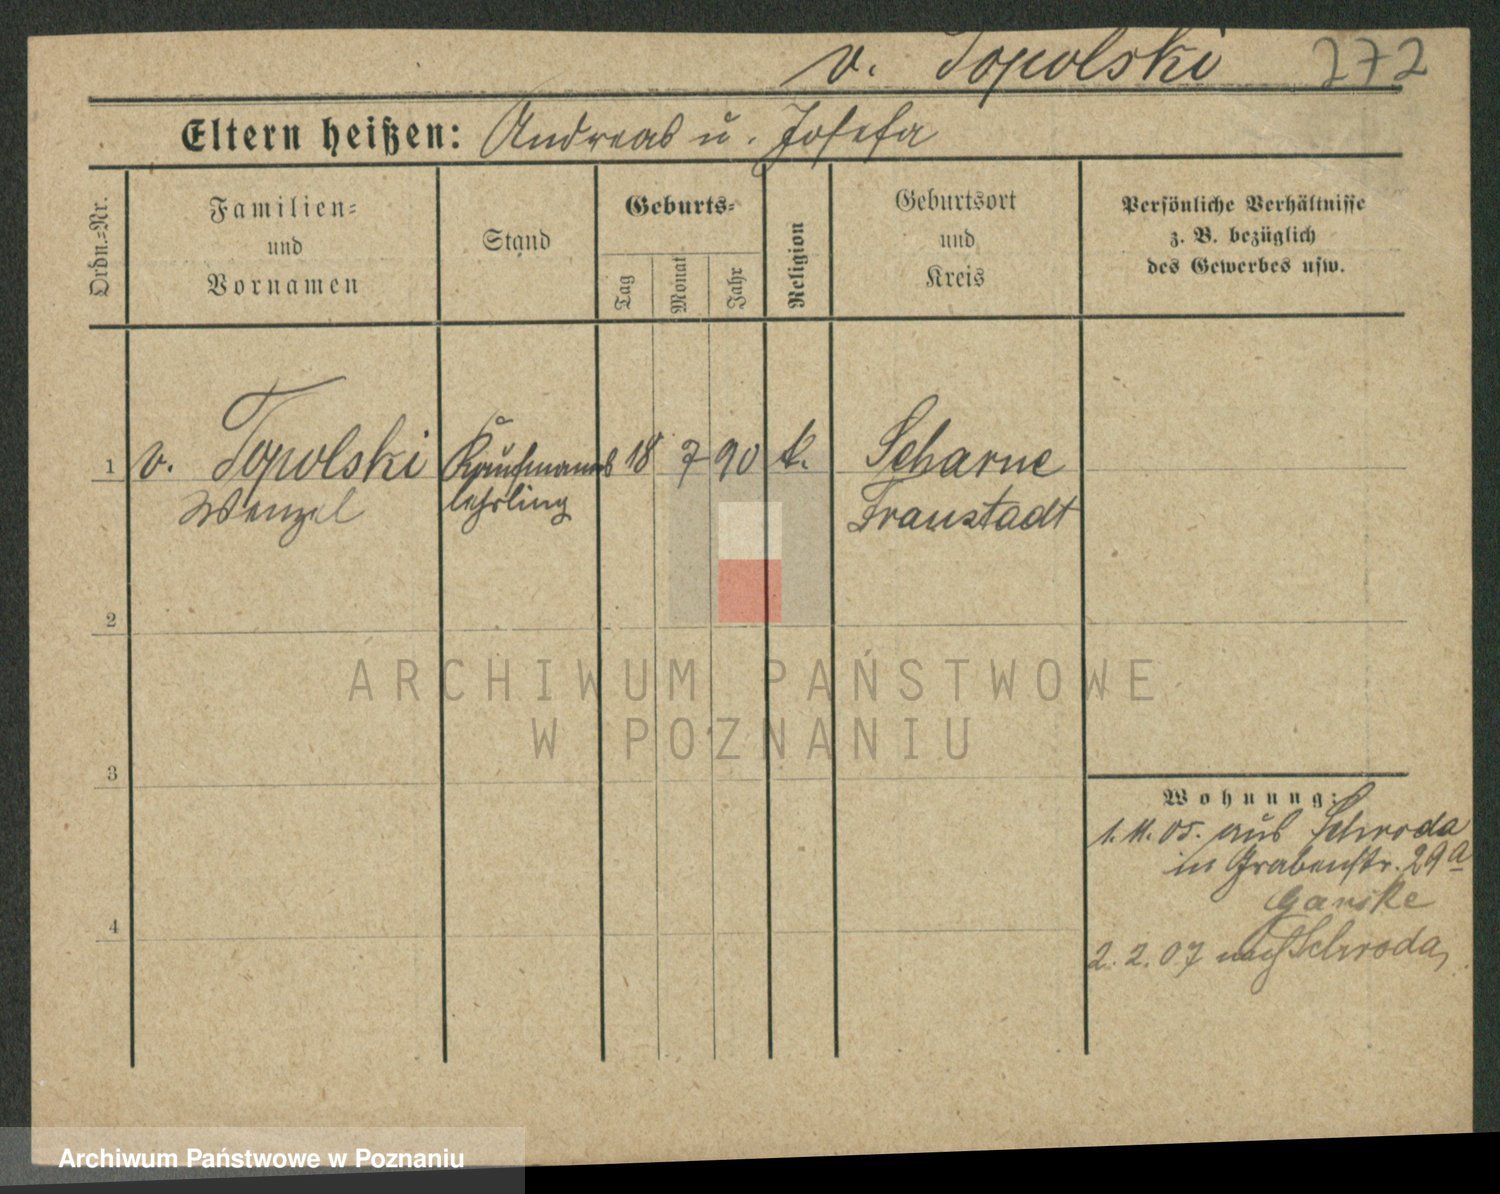 v. Topolski 272
Eltern heißen: Andreas u. Josefa
Ordn.-Nr.
Familien-
und
Vornamen
Stand
Geburts-
Tag
Monat
Jahr
Religion
Geburtsort
und
Kreis
Persönliche Verhältnisse
z. B. bezüglich
des Gewerbes usw.
1 v. Topolski Kaufmanns 18 7 90 k. Scharne
Wenzel lehrling Fraustadt
2
3
4
Wohnung:
1. 11. 05. aus Schroda
in Grabenstr. 29a
Ganske
2. 2. 07 nach Schroda,
ARCHIWUM PAŃSTWOWE
W POZNANIU
Archiwum Państwowe w Poznaniu